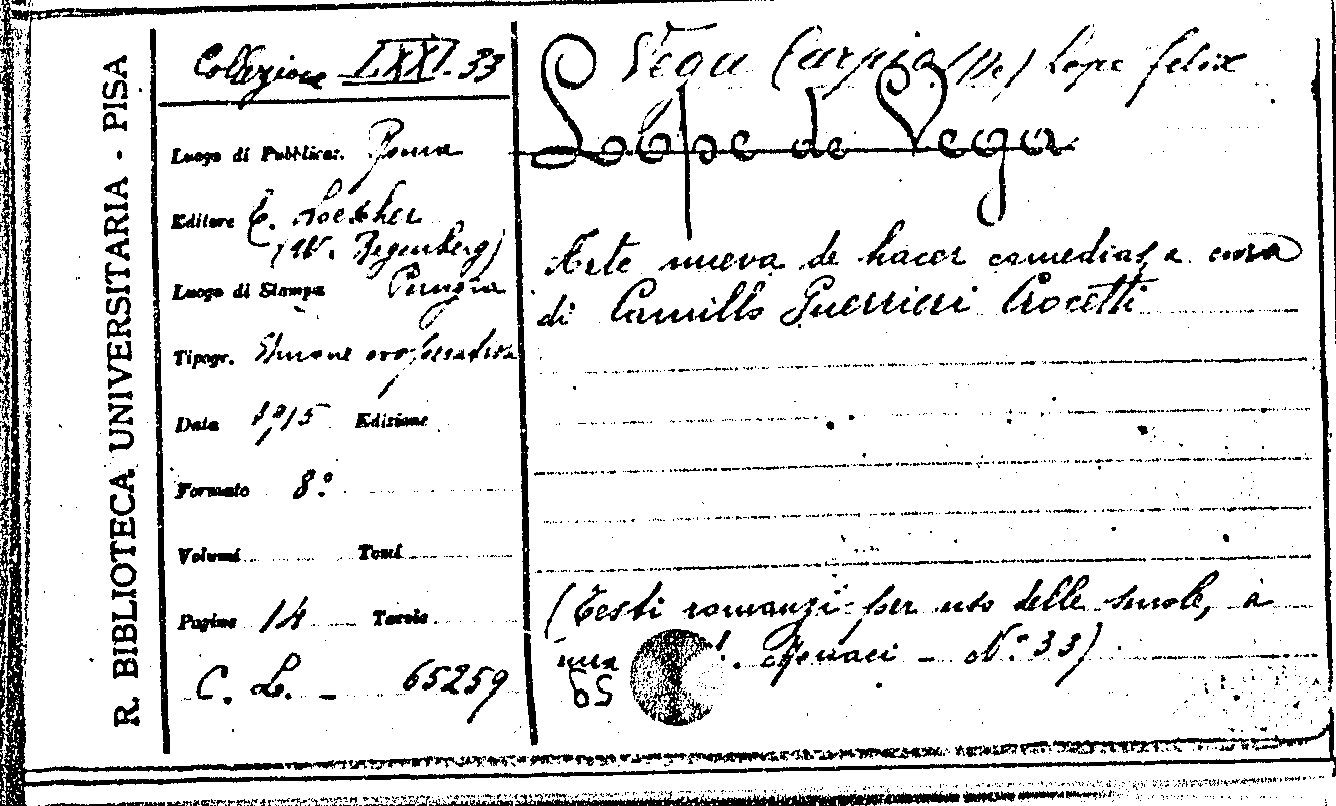 R. BIBLIOTECA UNIVERSITARIA - PISA
Collezione LXXI. 33
Luogo di Pubblicaz. Roma
Editore E. Loescher
(W. Regenberg)
Luogo di Stampa Perugia
Tipogr. Unione cooperativa
Data 1915 Edizione
Formato 8º
Volumi Tomi
Pagine 14 Tavole
C. L. - 65259
Vega Carpio (De) Lope Felix
Lope de Vega
Arte nueva de hacer comedias, a cura
di Camillo Guerrieri Crocetti
(Testi romanzi per uso delle scuole, a
cura Monaci - N.º 33)
59